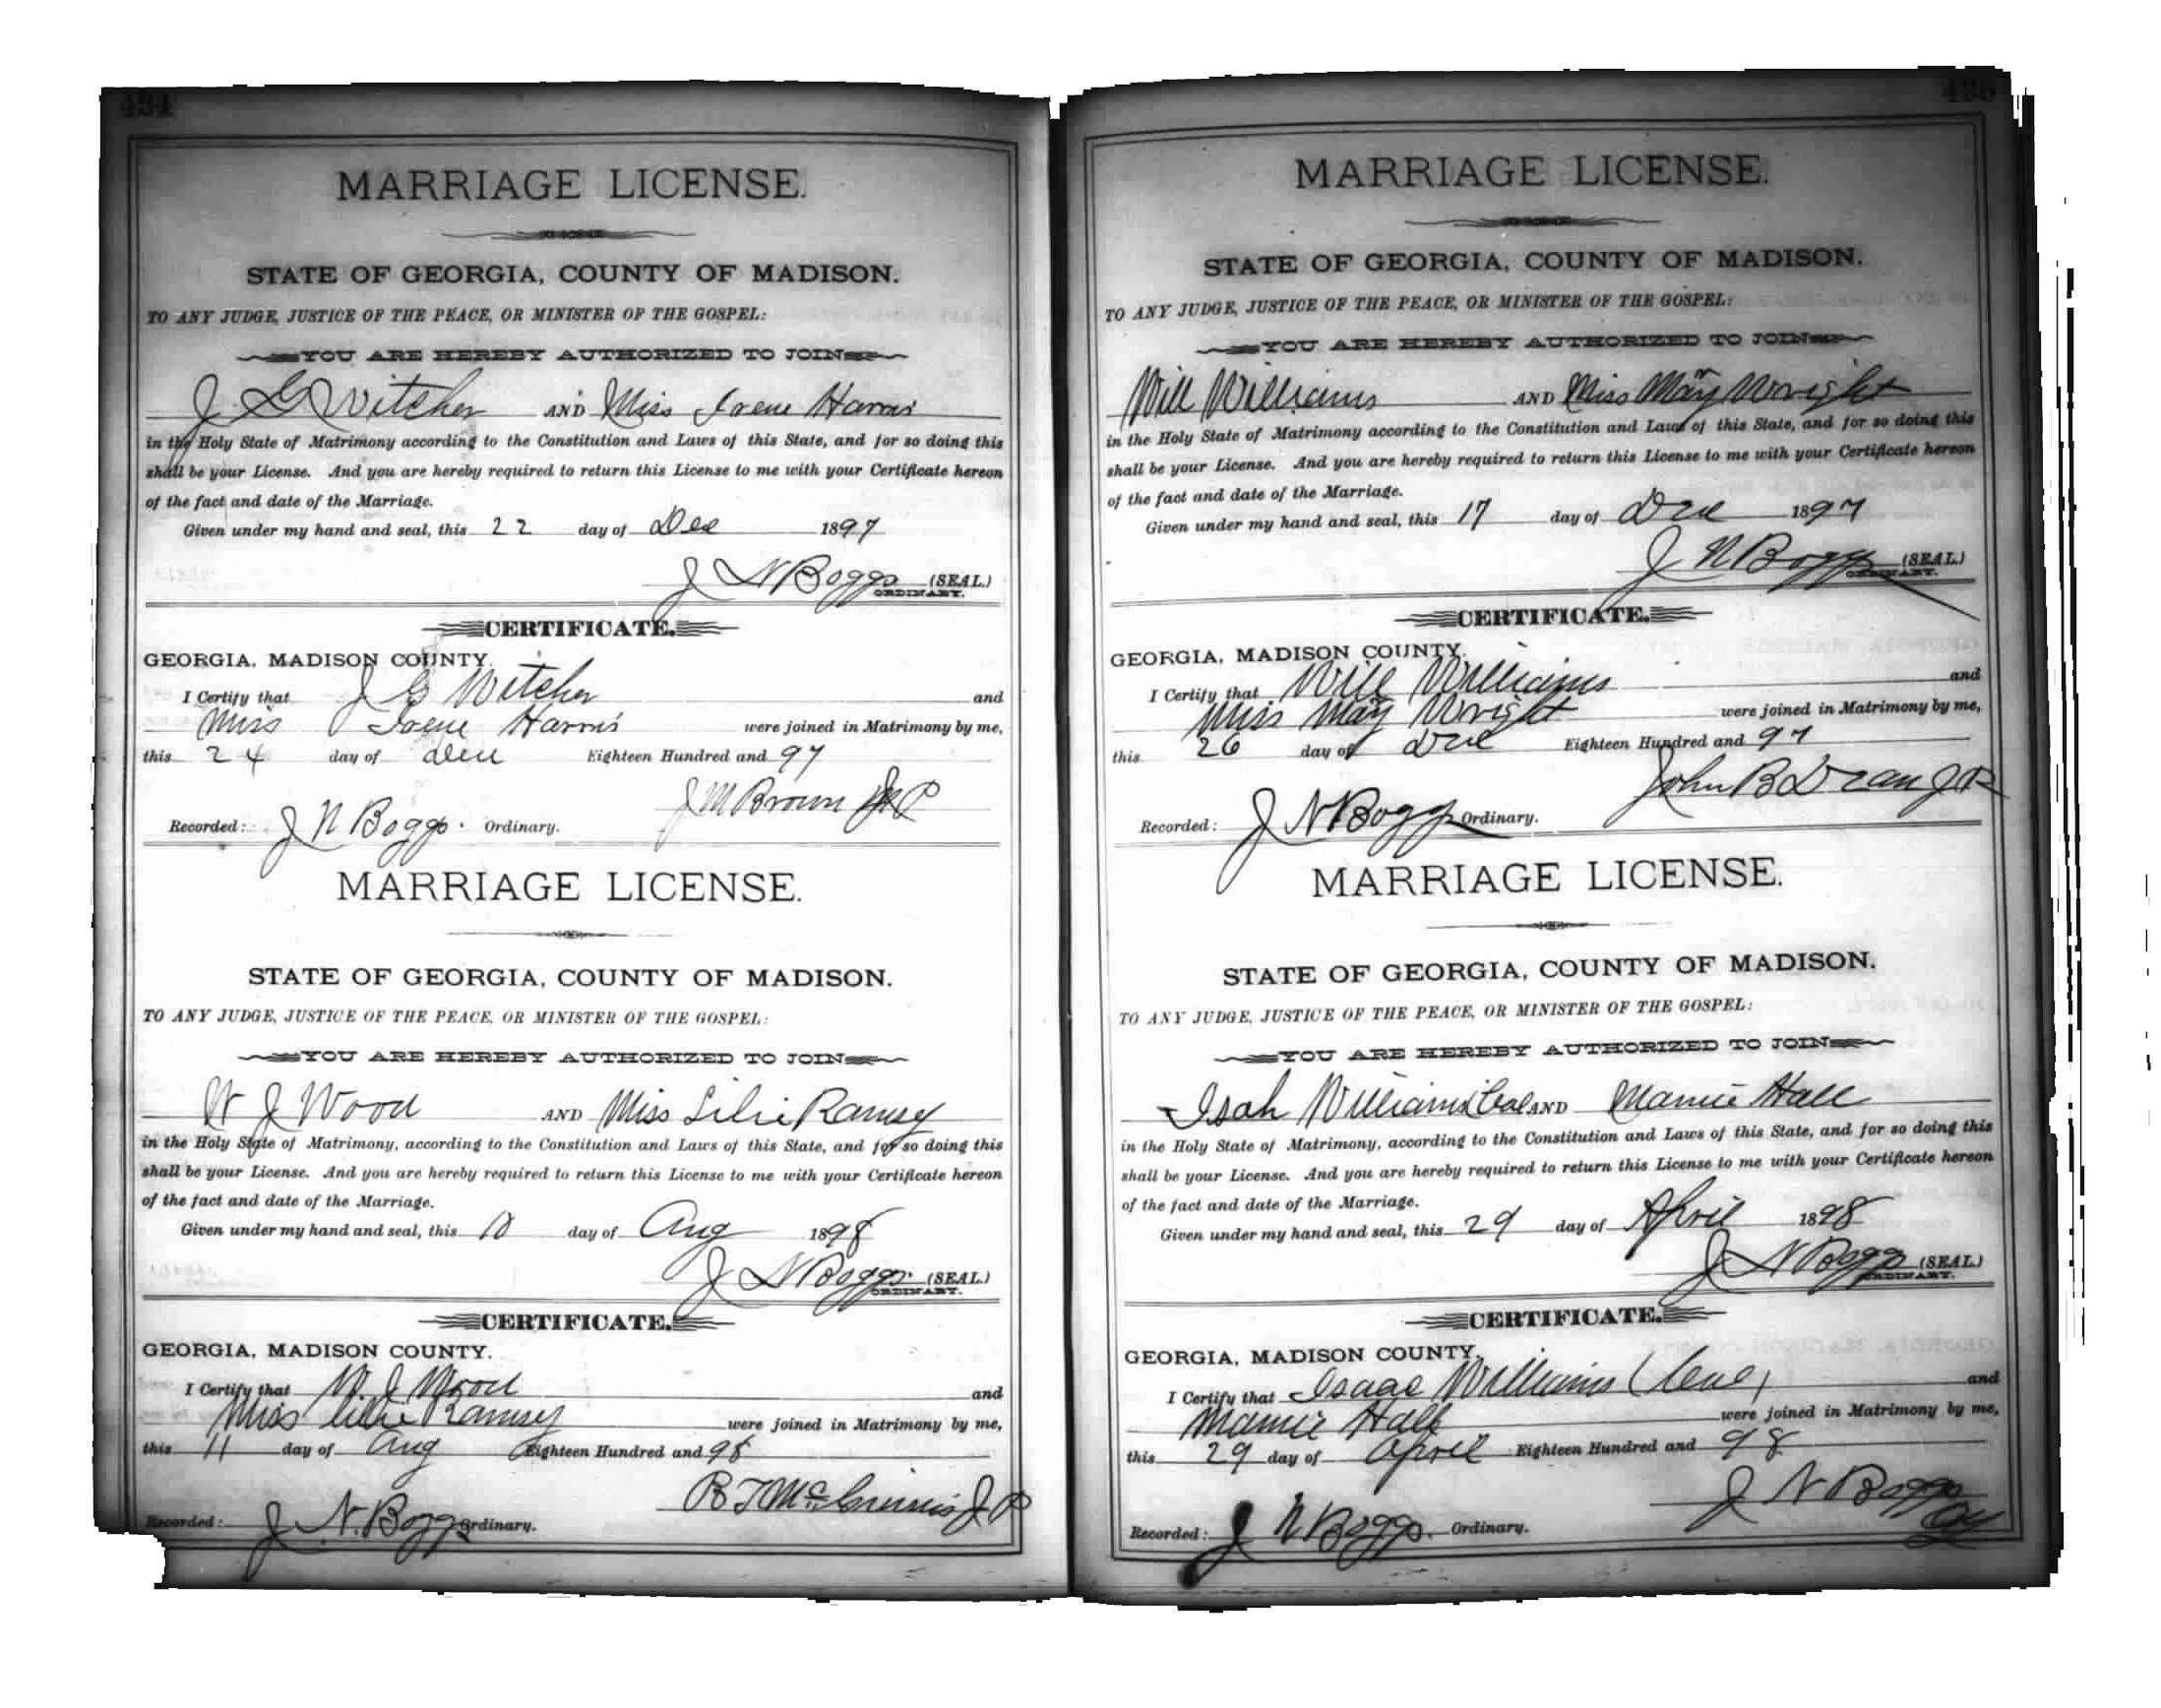 434
MARRIAGE LICENSE.
STATE OF GEORGIA, COUNTY OF MADISON.
TO ANY JUDGE, JUSTICE OF THE PEACE, OR MINISTER OF THE GOSPEL:
YOU ARE HEREBY AUTHORIZED TO JOIN
J G Witcher AND Miss Irene Harris
in the Holy State of Matrimony according to the Constitution and Laws of this State, and for so doing this
shall be your License. And you are hereby required to return this License to me with your Certificate hereon
of the fact and date of the Marriage.
Given under my hand and seal, this 22 day of Dec 1897
J N Boggs (SEAL.)
ORDINARY.
CERTIFICATE.
GEORGIA, MADISON COUNTY.
I Certify that J G Witcher and
Miss Irene Harris were joined in Matrimony by me,
this 24 day of Dec Eighteen Hundred and 97
J M Brown J P
Recorded: J N Boggs. Ordinary.
MARRIAGE LICENSE.
STATE OF GEORGIA, COUNTY OF MADISON.
TO ANY JUDGE, JUSTICE OF THE PEACE, OR MINISTER OF THE GOSPEL:
YOU ARE HEREBY AUTHORIZED TO JOIN
W J Wood AND Miss Lilie Ramsey
in the Holy State of Matrimony, according to the Constitution and Laws of this State, and for so doing this
shall be your License. And you are hereby required to return this License to me with your Certificate hereon
of the fact and date of the Marriage.
Given under my hand and seal, this 10 day of Aug 1898
J N Boggs. (SEAL.)
ORDINARY.
CERTIFICATE.
GEORGIA, MADISON COUNTY.
I Certify that W. J Wood and
Miss Lillie Ramsey were joined in Matrimony by me,
this 11 day of Aug Eighteen Hundred and 98
B T McGinnis J P
Recorded: J N. Boggs Ordinary.
435
MARRIAGE LICENSE.
STATE OF GEORGIA, COUNTY OF MADISON.
TO ANY JUDGE, JUSTICE OF THE PEACE, OR MINISTER OF THE GOSPEL:
YOU ARE HEREBY AUTHORIZED TO JOIN
Will Williams AND Miss May Wright
in the Holy State of Matrimony according to the Constitution and Laws of this State, and for so doing this
shall be your License. And you are hereby required to return this License to me with your Certificate hereon
of the fact and date of the Marriage.
Given under my hand and seal, this 17 day of Dec 1897
J N Boggs (SEAL.)
ORDINARY.
CERTIFICATE.
GEORGIA, MADISON COUNTY.
I Certify that Will Williams and
Miss May Wright were joined in Matrimony by me,
this 26 day of Dec Eighteen Hundred and 97
John B Dean J P
Recorded: J N Boggs Ordinary.
MARRIAGE LICENSE.
STATE OF GEORGIA, COUNTY OF MADISON.
TO ANY JUDGE, JUSTICE OF THE PEACE, OR MINISTER OF THE GOSPEL:
YOU ARE HEREBY AUTHORIZED TO JOIN
Isah Williams (Col AND Mamie Hall
in the Holy State of Matrimony, according to the Constitution and Laws of this State, and for so doing this
shall be your License. And you are hereby required to return this License to me with your Certificate hereon
of the fact and date of the Marriage.
Given under my hand and seal, this 29 day of April 1898
J N Boggs (SEAL.)
ORDINARY.
CERTIFICATE.
GEORGIA, MADISON COUNTY.
I Certify that Isaac Williams (Col) and
Mamie Hall were joined in Matrimony by me,
this 29 day of April Eighteen Hundred and 98
J N Boggs
Recorded: J N Boggs. Ordinary.